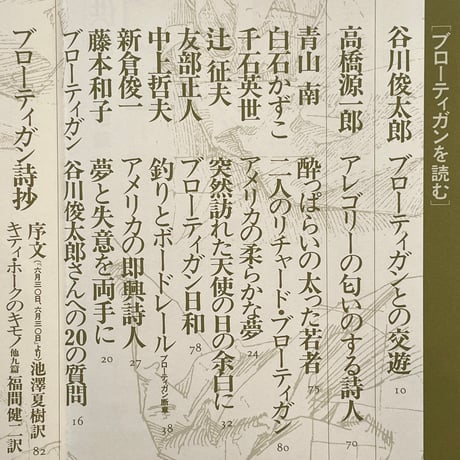 [ブローティガンを読む]
谷川俊太郎 ブローティガンとの交遊 10
高橋源一郎 アレゴリーの匂いのする詩人 70
青山 南 酔っぱらいの太った若者 75
白石かずこ 二人のリチャード・ブローティガン 80
千石英世 アメリカの柔らかな夢 24
辻 征夫 突然訪れた天使の日の余白に 32
友部正人 ブローティガン日和 78
中上哲夫 釣りとボードレール ブローティガン断章 38
新倉俊一 アメリカの即興詩人 27
藤本和子 夢と失意を両手に 20
ブローティガン 谷川俊太郎さんへの20の質問 16
ブローティガン詩抄
序文(『六月三〇日、六月三〇日』より) 池澤夏樹訳
キティ・ホークのキモノ 他九篇 福間健二訳 82